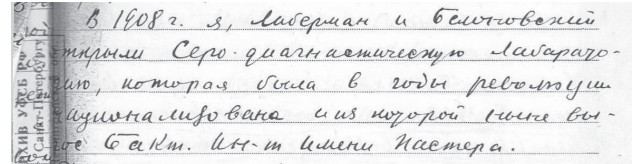 В 1908 г. я, Либерман и Белоновский
открыли Серо-диагностическую Лабарато-
рию, которая была в годы революции
национализована и из которой ныне вы-
рос Бакт. Ин-т имени Пастера.
АРХИВ УФСБ РФ
по Санкт-Петербургу